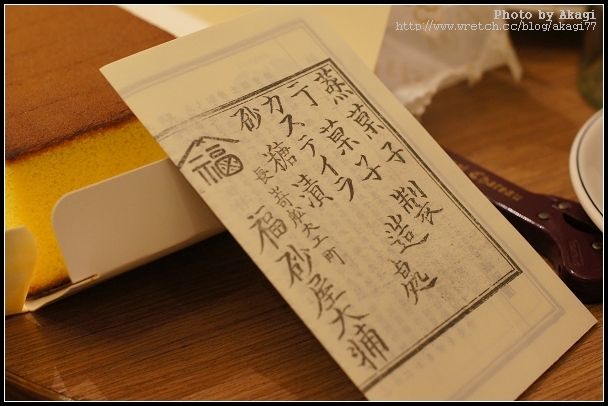 Photo by Akagi
http://www.wretch.cc/blog/akagi77
蒸菓子
丁菓子
カステイラ
砂糖漬
製造処
福
長崎舩大工町
福砂屋大補
Chateau